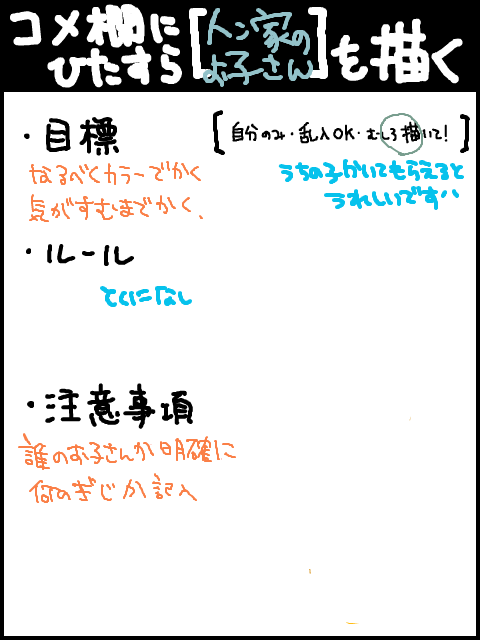 コメ欄に
ひたすら
[人ン家の
お子さん]
も描く
・目標
[自分のみ・乱入OK・むしろ描いて!]
なるべくカラーでかく
気がすむまでかく、
うちの子かいてもらえると
うれしいです''
・ルール
とくになし
・注意事項
誰のお子さんか明確に
何のぎじか記入